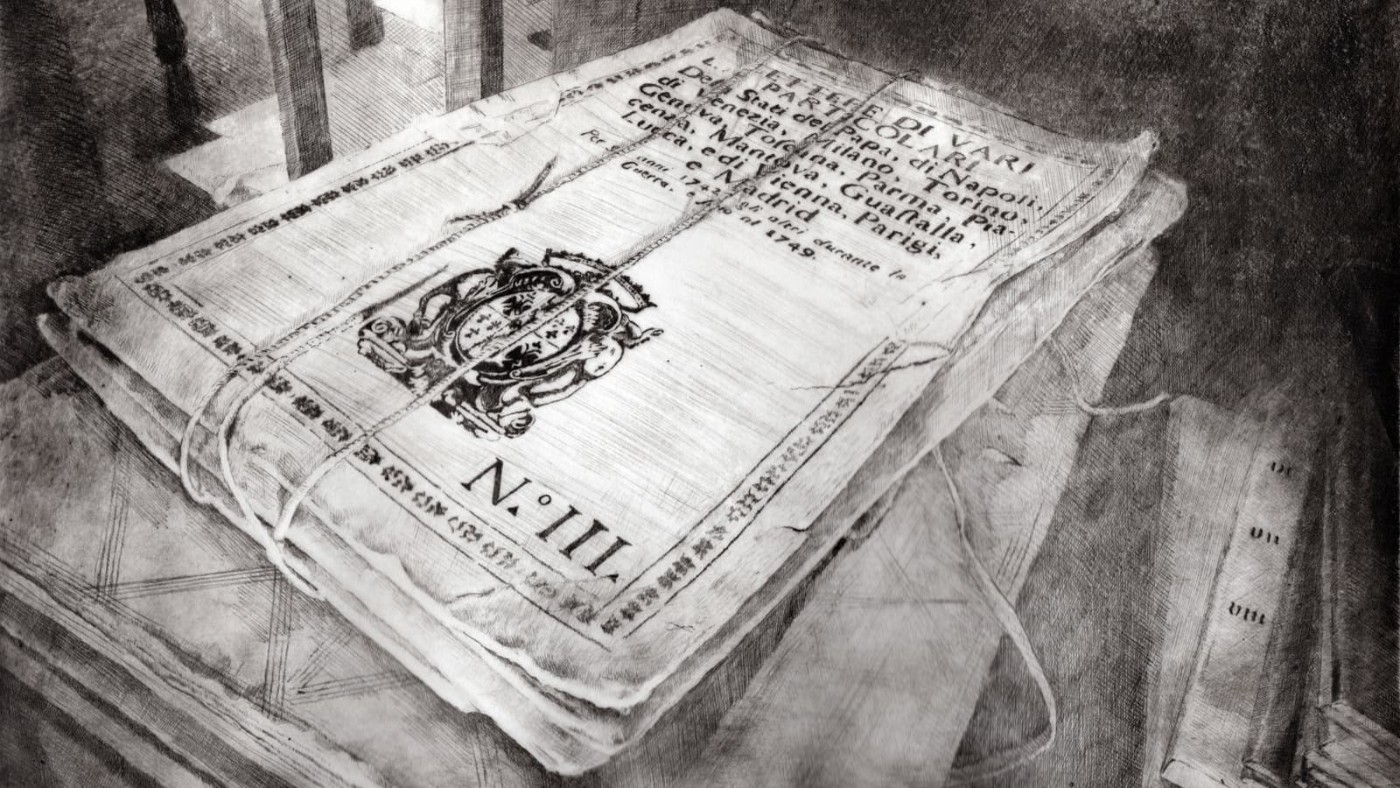 LETTERE DI VARI
PARTICOLARI
Dei Stati del Papa, di Napoli,
di Venezia, Milano, Torino,
Genova, Toscana, Parma, Pia-
cenza, Mantova, Guaſtalla,
Lucca, e di Vienna, Parigi,
e Madrid
1742 gli altri durante la
Guerra. 1749.
N.º III.
VII
VIII